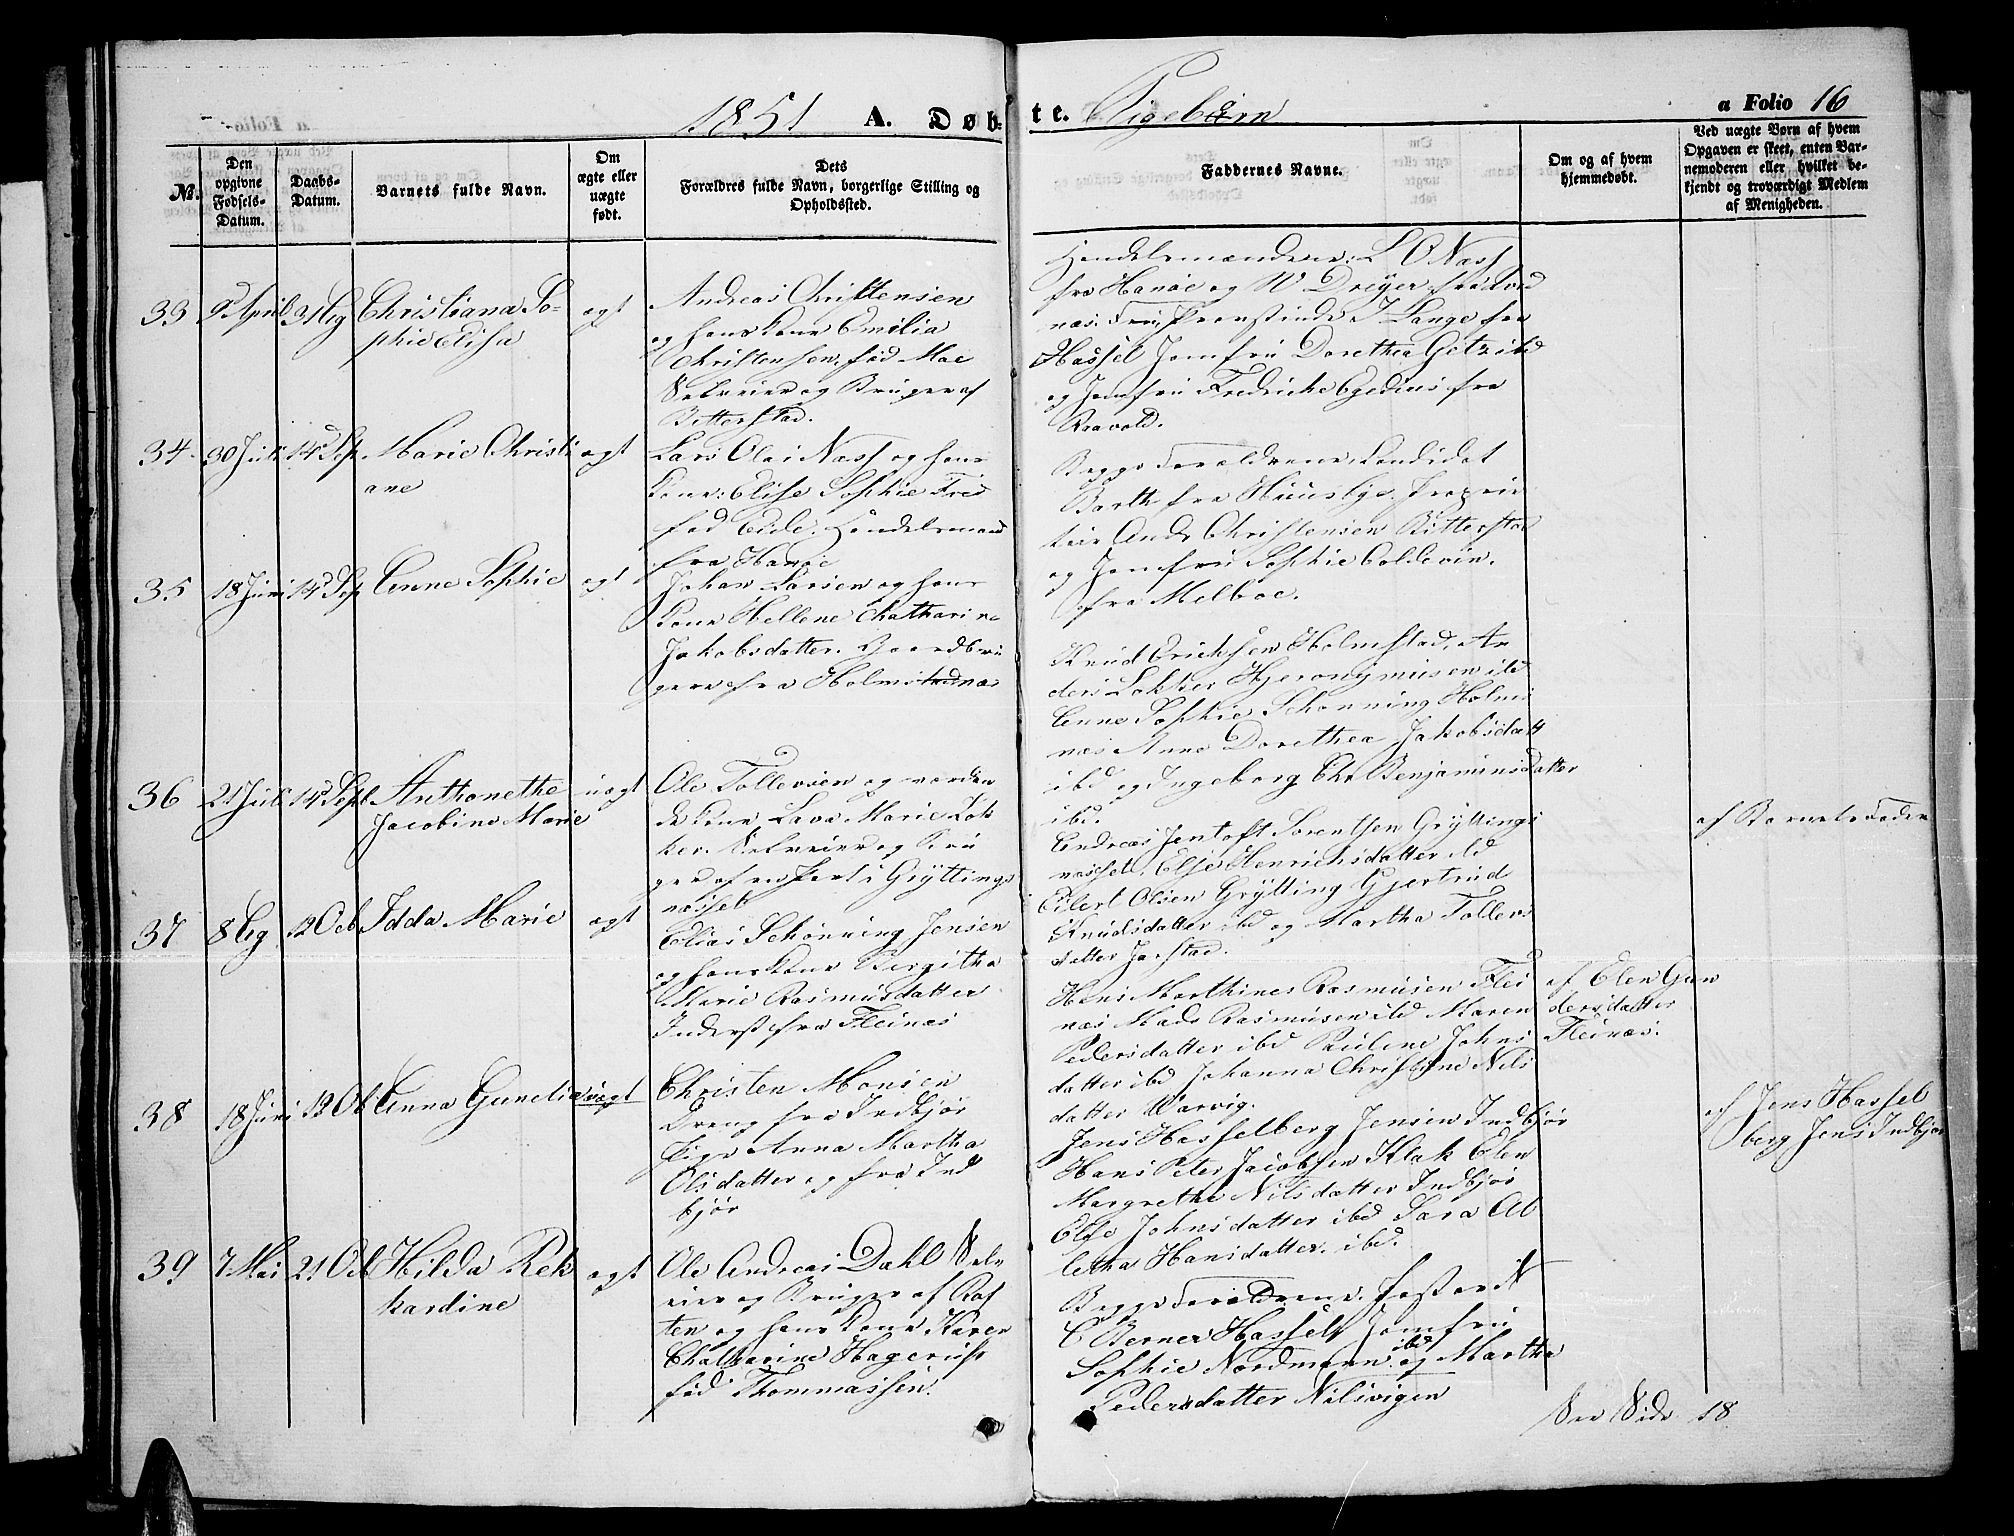 1851 A. Døbte. Pigebørn a Folio 16
№.
Den opgivne Fødsels-Datum.
Daabs-Datum.
Barnets fulde Navn.
Om ægte eller uægte født.
Dets Forældres fulde Navn, borgerlige Stilling og Opholdssted.
Faddernes Navne.
Om og af hvem hjemmedøbt.
Ved uægte Børn af hvem Opgaven er skeet, enten Barnemoderen eller hvilket bekjendt og troværdigt Medlem af Menigheden.
33 9 April 31 Aug Christiana So-
phie Elisa
ægt
Andreas Christensen
og hans Kone Emilia
Christensen, fød Moe
Selveier og Bruger af
Bitterstad.
Handelsmændene: L O Næss
fra Hanøe og W Dreyer fra
næs. Fru Provstinde J Lange fra
Hassel Jomfru Dorethea Getz ibd
og Jomfru Fredricke Egedius fra
34 30 Juli 14 Sep. Marie Christi
ane
ægt
Lars Olai Næss og hans
Kone: Elise Sophie Fris
fød Eide. Handelsmand
fra Hanøe
Begge Forældrene, Candidat
Barth fra Huusbye. Proprie
tair Ands Christensen Bitterstad
og Jomfru Sophie Coldevin.
fra Melboe.
35 18 Juni 14 Sep Anne Sophie ægt
Johan Larsen og hans
Kone Hellene Chatharine
Jakobsdatter. Gaardbru
gere fra Holmsnæs
Knud Ericksen Holmstad, An
ders Lokker Hjeronymusen ibd
Anne Sophie Schønning Holms
næs Anne Dorethea Jakobsdatt
ibd og Ingeborg Chr Benjaminsdatter
ibd.
36 21 Juli 14 Sept Anthonethe
Jacobine Marie
uægt
Ole Tollevsen og vorden
de Kone Lava Marie Lok
ker. Selveier og Bru
ger af en Part i Grytting
næsset
Andreas Jentoft Sørentsen Gryttings
næsset. Else Henrichsdatter ibd
Eilert Olsen Grytting Gjertrud
Knudsdatter ibd og Martha Tollevs
datter Jørstad.
af Barnets Fader
37 8 Aug 12 Ocb Idda Marie ægt
Elias Schønning Jensen
og hans Kone Birgitha
Marie Rasmusdatter
Inderst fra Fleinæs
Hans Marthines Rasmusen Flei
næs Mads Rasmusen ibd Maren
Pedersdatter ibd Pauline Johns
datter ibd Johanna Christine Nils
datter Warvig.
af Elen Gun
dersdatter
Fleinæs.
38 18 Juni 12 Ob Anna Gunelia uægt
Christen Monsen
Dreng fra Indbjør
Pige Anna Martha
Olsdatter og fra Ind
bjør
Jens Hasselberg Jensen Indbjør
Hans Peter Jacobsen Klak Elen
Margrethe Nilsdatter Indbjør
Else Johnsdatter ibd Sara Al
letha Hansdatter. ibd.
af Jens Hassel
berg Jens Indbjør
39 7 Mai 21 Ocb Hilda Rek
kardine
ægt
Ole Andreas Dahl Selv
eier og Bruger af Raf
ten og hans Kone Karen
Chatharine Hagerup
fød Thommassen.
Begge Forældrene.
C Berner Hassel Jomfru
Sophie Nordmann ibd og Martha
Pedersdatter Nilsvigen
See Side 18